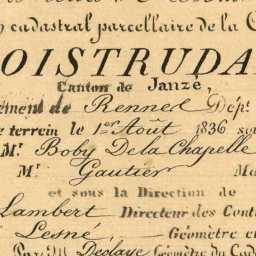 cadastral parcellaire de la C
OISTRUDA
Canton de Janzé,
ement de Rennes Dép.
e terrein le 1er Août 1836 so
Mr. Boby De la Chapelle
Mr Gautier M
et sous la Direction de
Lambert Directeur des Cont
Lesné, Géomètre e
Par M. Delaye Géomètre du Cad